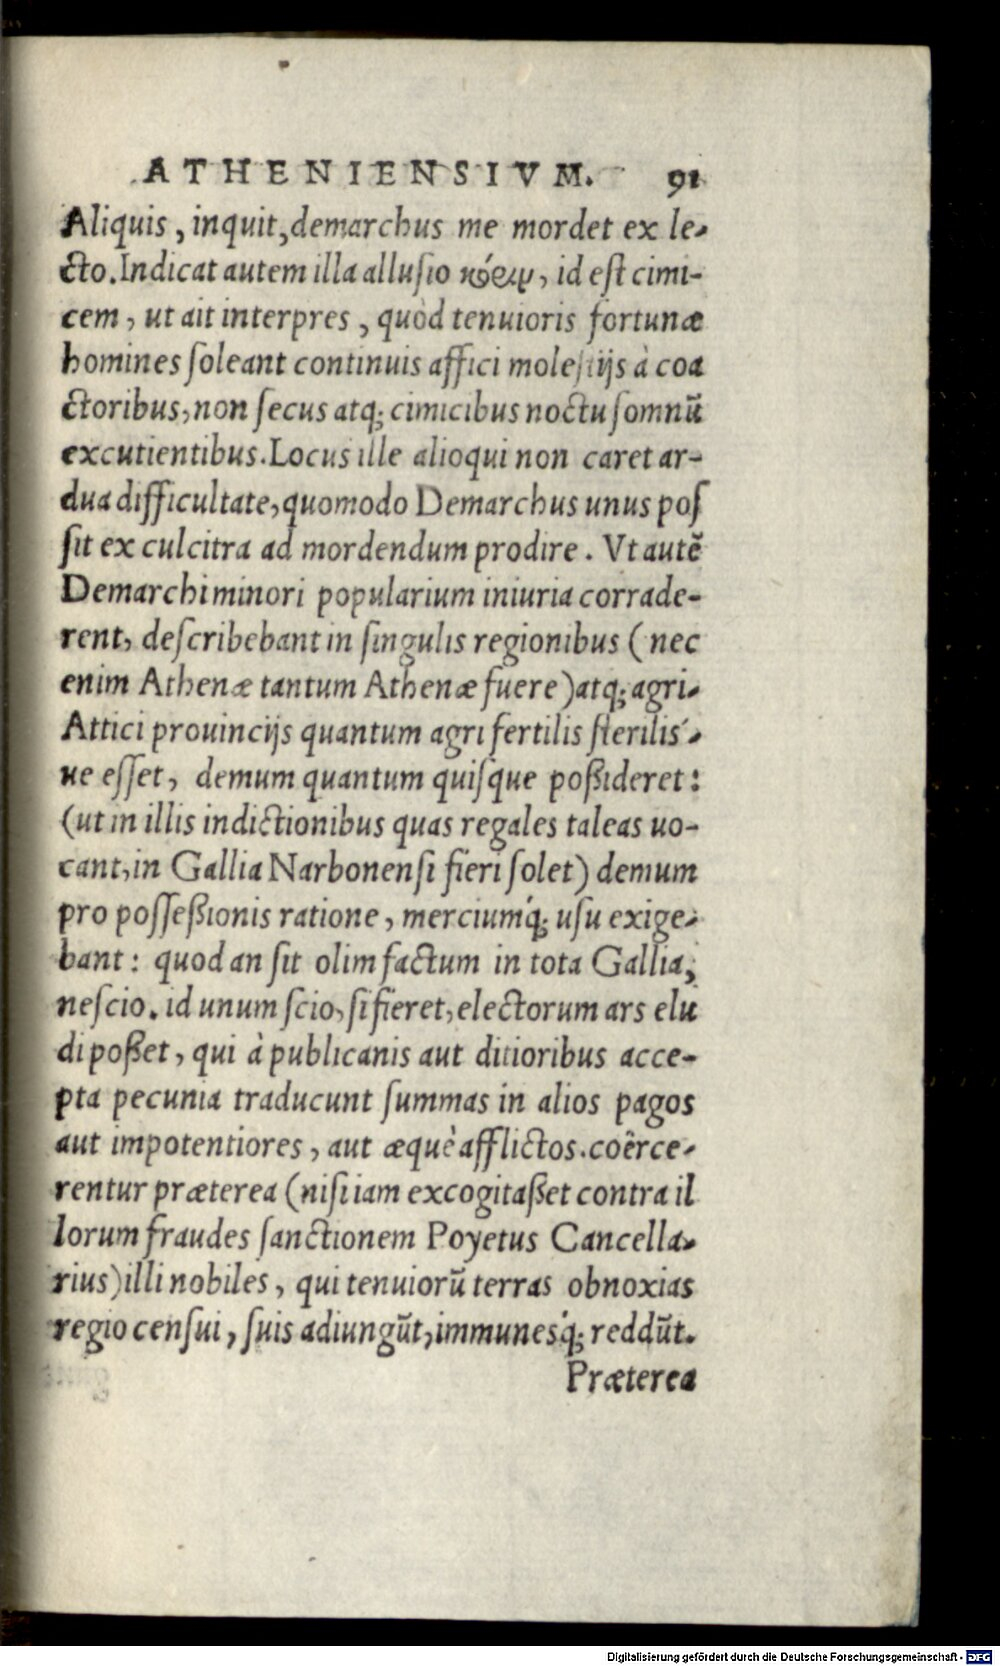 ATHENIENSIVM. 91
Aliquis, inquit, demarchus me mordet ex le-
cto. Indicat autem illa allusio κόριν, id est cimi-
cem, ut ait interpres, quòd tenuioris fortunæ
homines soleant continuis affici molestijs à coa
ctoribus, non secus atq; cimicibus noctu somnũ
excutientibus. Locus ille alioqui non caret ar-
dua difficultate, quomodo Demarchus unus pos
sit ex culcitra ad mordendum prodire. Vt autẽ
Demarchi minori popularium iniuria corrade-
rent, describebant in singulis regionibus (nec
enim Athenæ tantum Athenæ fuere) atq; agri-
Attici prouincijs quantum agri fertilis sterilis´-
ue esset, demum quantum quisque poßideret:
(ut in illis indictionibus quas regales taleas uo-
cant, in Gallia Narbonensi fieri solet) demum
pro posseßionis ratione, mercium´q; usu exige-
bant: quod an sit olim factum in tota Gallia,
nescio. id unum scio, si fieret, electorum ars elu
di poßet, qui à publicanis aut ditioribus acce-
pta pecunia traducunt summas in alios pagos
aut impotentiores, aut æquè afflictos. coêrce-
rentur præterea (nisi iam excogitaßet contra il
lorum fraudes sanctionem Poyetus Cancella-
rius) illi nobiles, qui tenuiorũ terras obnoxias
regio censui, suis adiungũt, immunes´q; reddũt.
Præterea
Digitalisierung gefördert durch die Deutsche Forschungsgemeinschaft - DFG